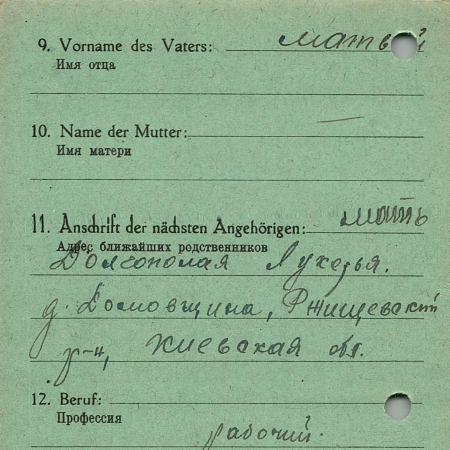 9. Vorname des Vaters: Матвей
Имя отца
10. Name der Mutter: —
Имя матери
11. Anschrift der nächsten Angehörigen: мать
Адрес ближайших родственников
Долгополая Лукерья.
д. Домовщина, Ржищевский
р-н, Киевская обл.
12. Beruf:
Профессия
рабочий.